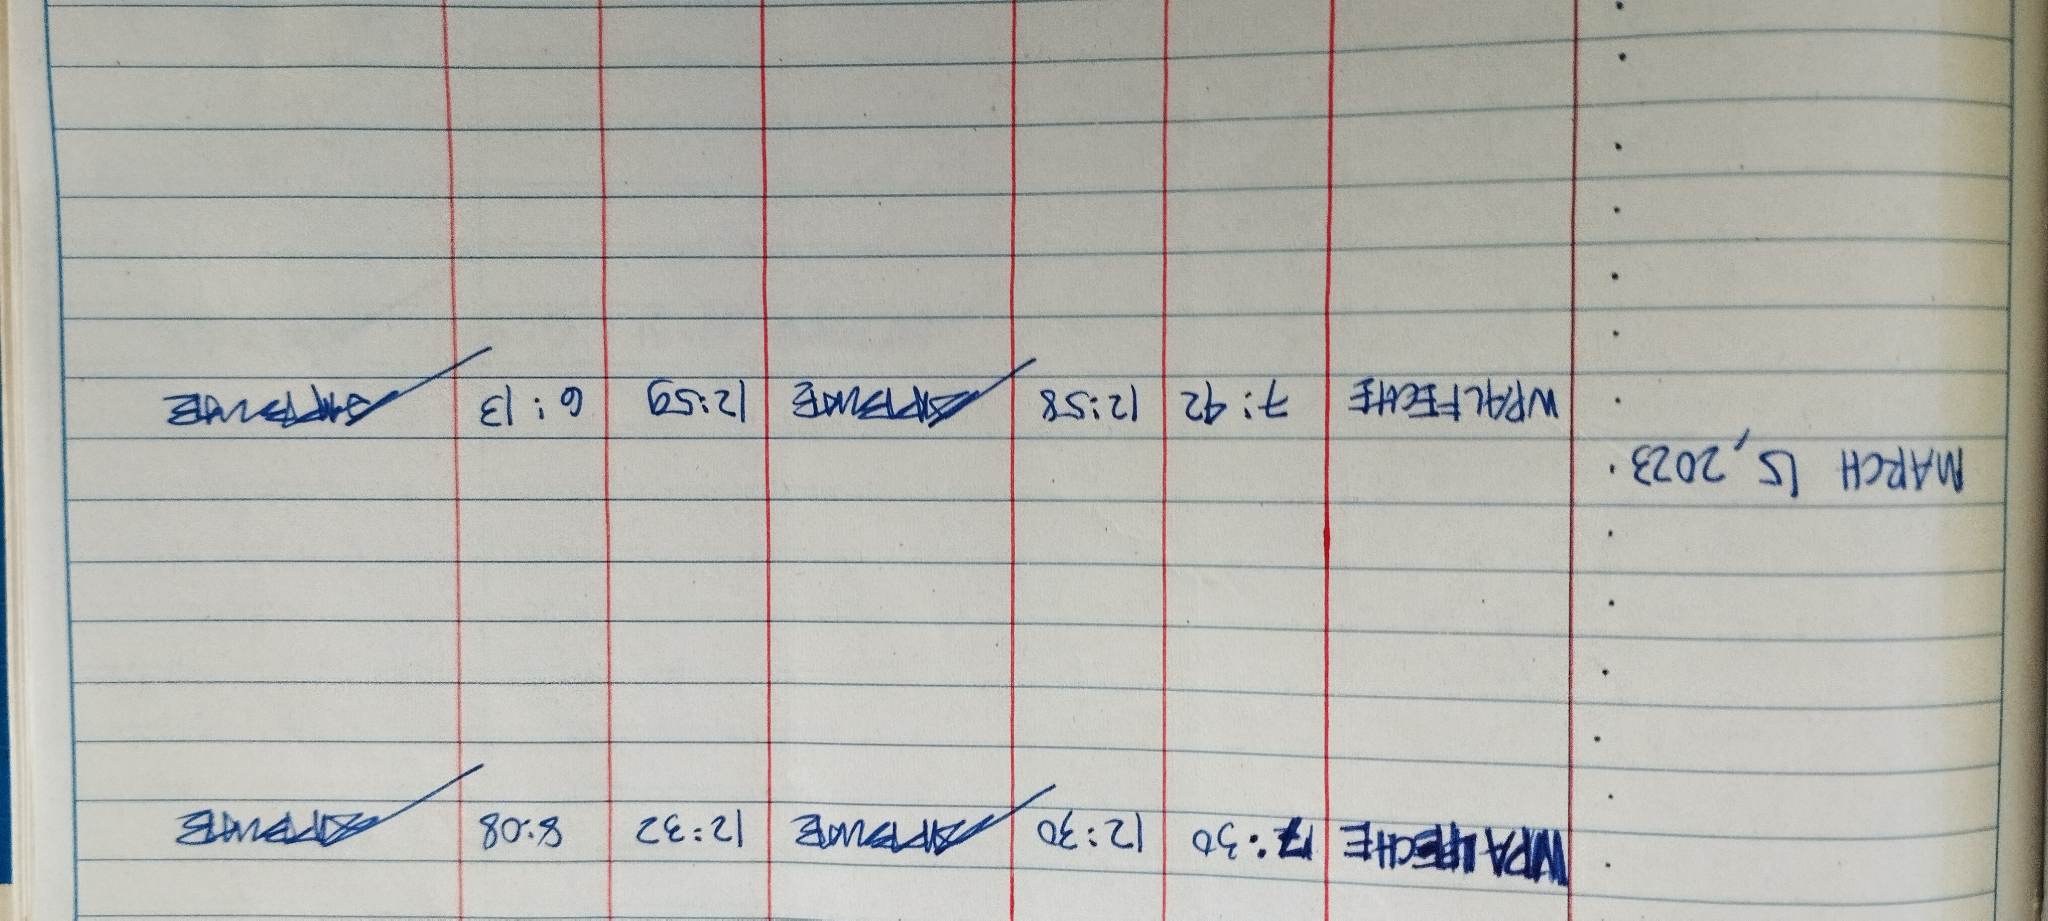 WPALFECHE 7:30 12:30 12:32 8:08
MARCH 15, 2023
WPALFECHE 7:42 12:58 12:59 6:13